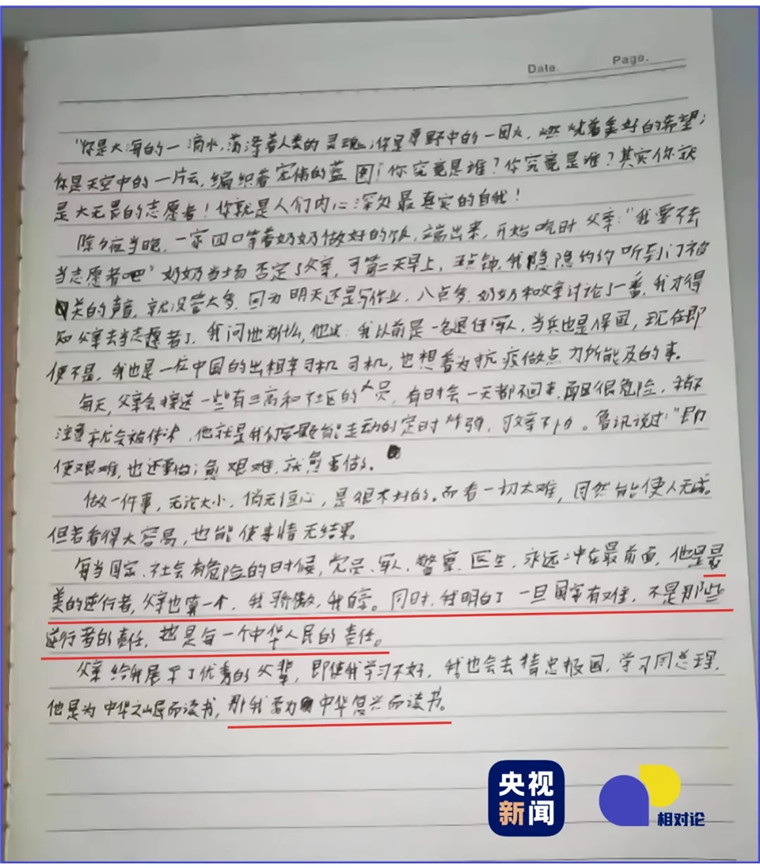 Date. Page.
"你是大海的一滴水,荡漾着人类的灵魂;你是原野中的一团火,燃烧着美好的希望;
你是天空中的一片云,编织着宏伟的蓝图;你究竟是谁?你究竟是谁?其实你就
是大无畏的志愿者!你就是人们内心深处最真实的自我!
除夕夜当晚,一家四口等着奶奶做好的饭,端出来,开始吃时,父亲:"我要不去
当志愿者吧"奶奶当场否定了父亲,可第二天早上,五点钟,我隐隐约约听到门被
关的声音,就没管太多,因为明天还是写作业,八点多,奶奶和父亲讨论了一番,我才得
知父亲去当志愿者了,我问他为什么,他说:我以前是一名退伍军人,当兵也是保国,现在即
便不是,我也是一位中国的出租车司机 司机,也想着为抗疫做点力所能及的事。
每天,父亲会接送一些有三高和社区的人员,有时会一天都不回来,而且很危险,稍不
注意就会被传染,他就是我们家能走动的定时炸弹,鲁迅说过:"即
便艰难,也还要做;愈艰难,就愈要做。
做一件事,无论大小,倘无恒心,是很不好的。而看一切太难,固然能使人无成。
但若看得太容易,也能使事情无结果。
每当国家、社会有危险的时候,党员、军人、警察、医生,永远冲在最前面,他是最
美的逆行者,父亲也算一个,我骄傲,我自豪。同时,我明白了一旦国家有难,不是那些
逆行者的责任,也是每一个中华人民的责任。
父亲给我展示了优秀的父辈,即使我学习不好,我也会去精忠报国,学习周总理,
他是为中华之崛起而读书,那我要为中华复兴而读书。
央视
新闻
相对论